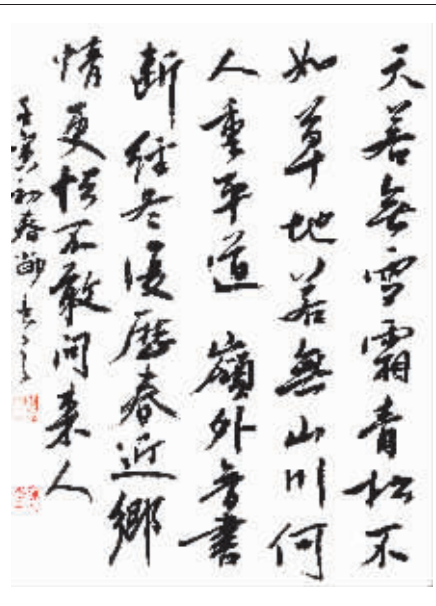 天若無雪霜青松不
如草地若無山川何
人重平道嶺外音書
断經冬復歷春近鄉
情更怯不敢問来人
壬寅初春